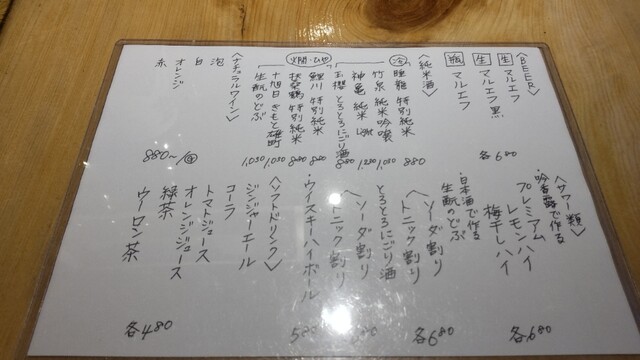 〈BEER〉
生 マルエフ
生 マルエフ黒
瓶 マルエフ
各680
〈純米酒〉
冷
睡龍 特別純米 880
竹泉 純米吟醸 1,080
神亀 純米
玉櫻 とろとろにごり酒
燗・ひや
鯉川 特別純米 880
扶桑鶴 特別純米 880
十旭日 きもと雄町 1,030
生酛のどぶ 1,030
〈ナチュラルワイン〉
泡
白
オレンジ
赤
880〜/
〈サワー類〉
吟香露で作る
プレミアム
レモンハイ
梅干しハイ
各680
・日本酒で作る
生酛のどぶ
〈ソーダ割り
〈トニック割り
各680
とろとろにごり酒
〈ソーダ割り
〈トニック割り
・ウイスキーハイボール
580
〈ソフトドリンク〉
ジンジャーエール
コーラ
トマトジュース
オレンジジュース
緑茶
ウーロン茶
各480